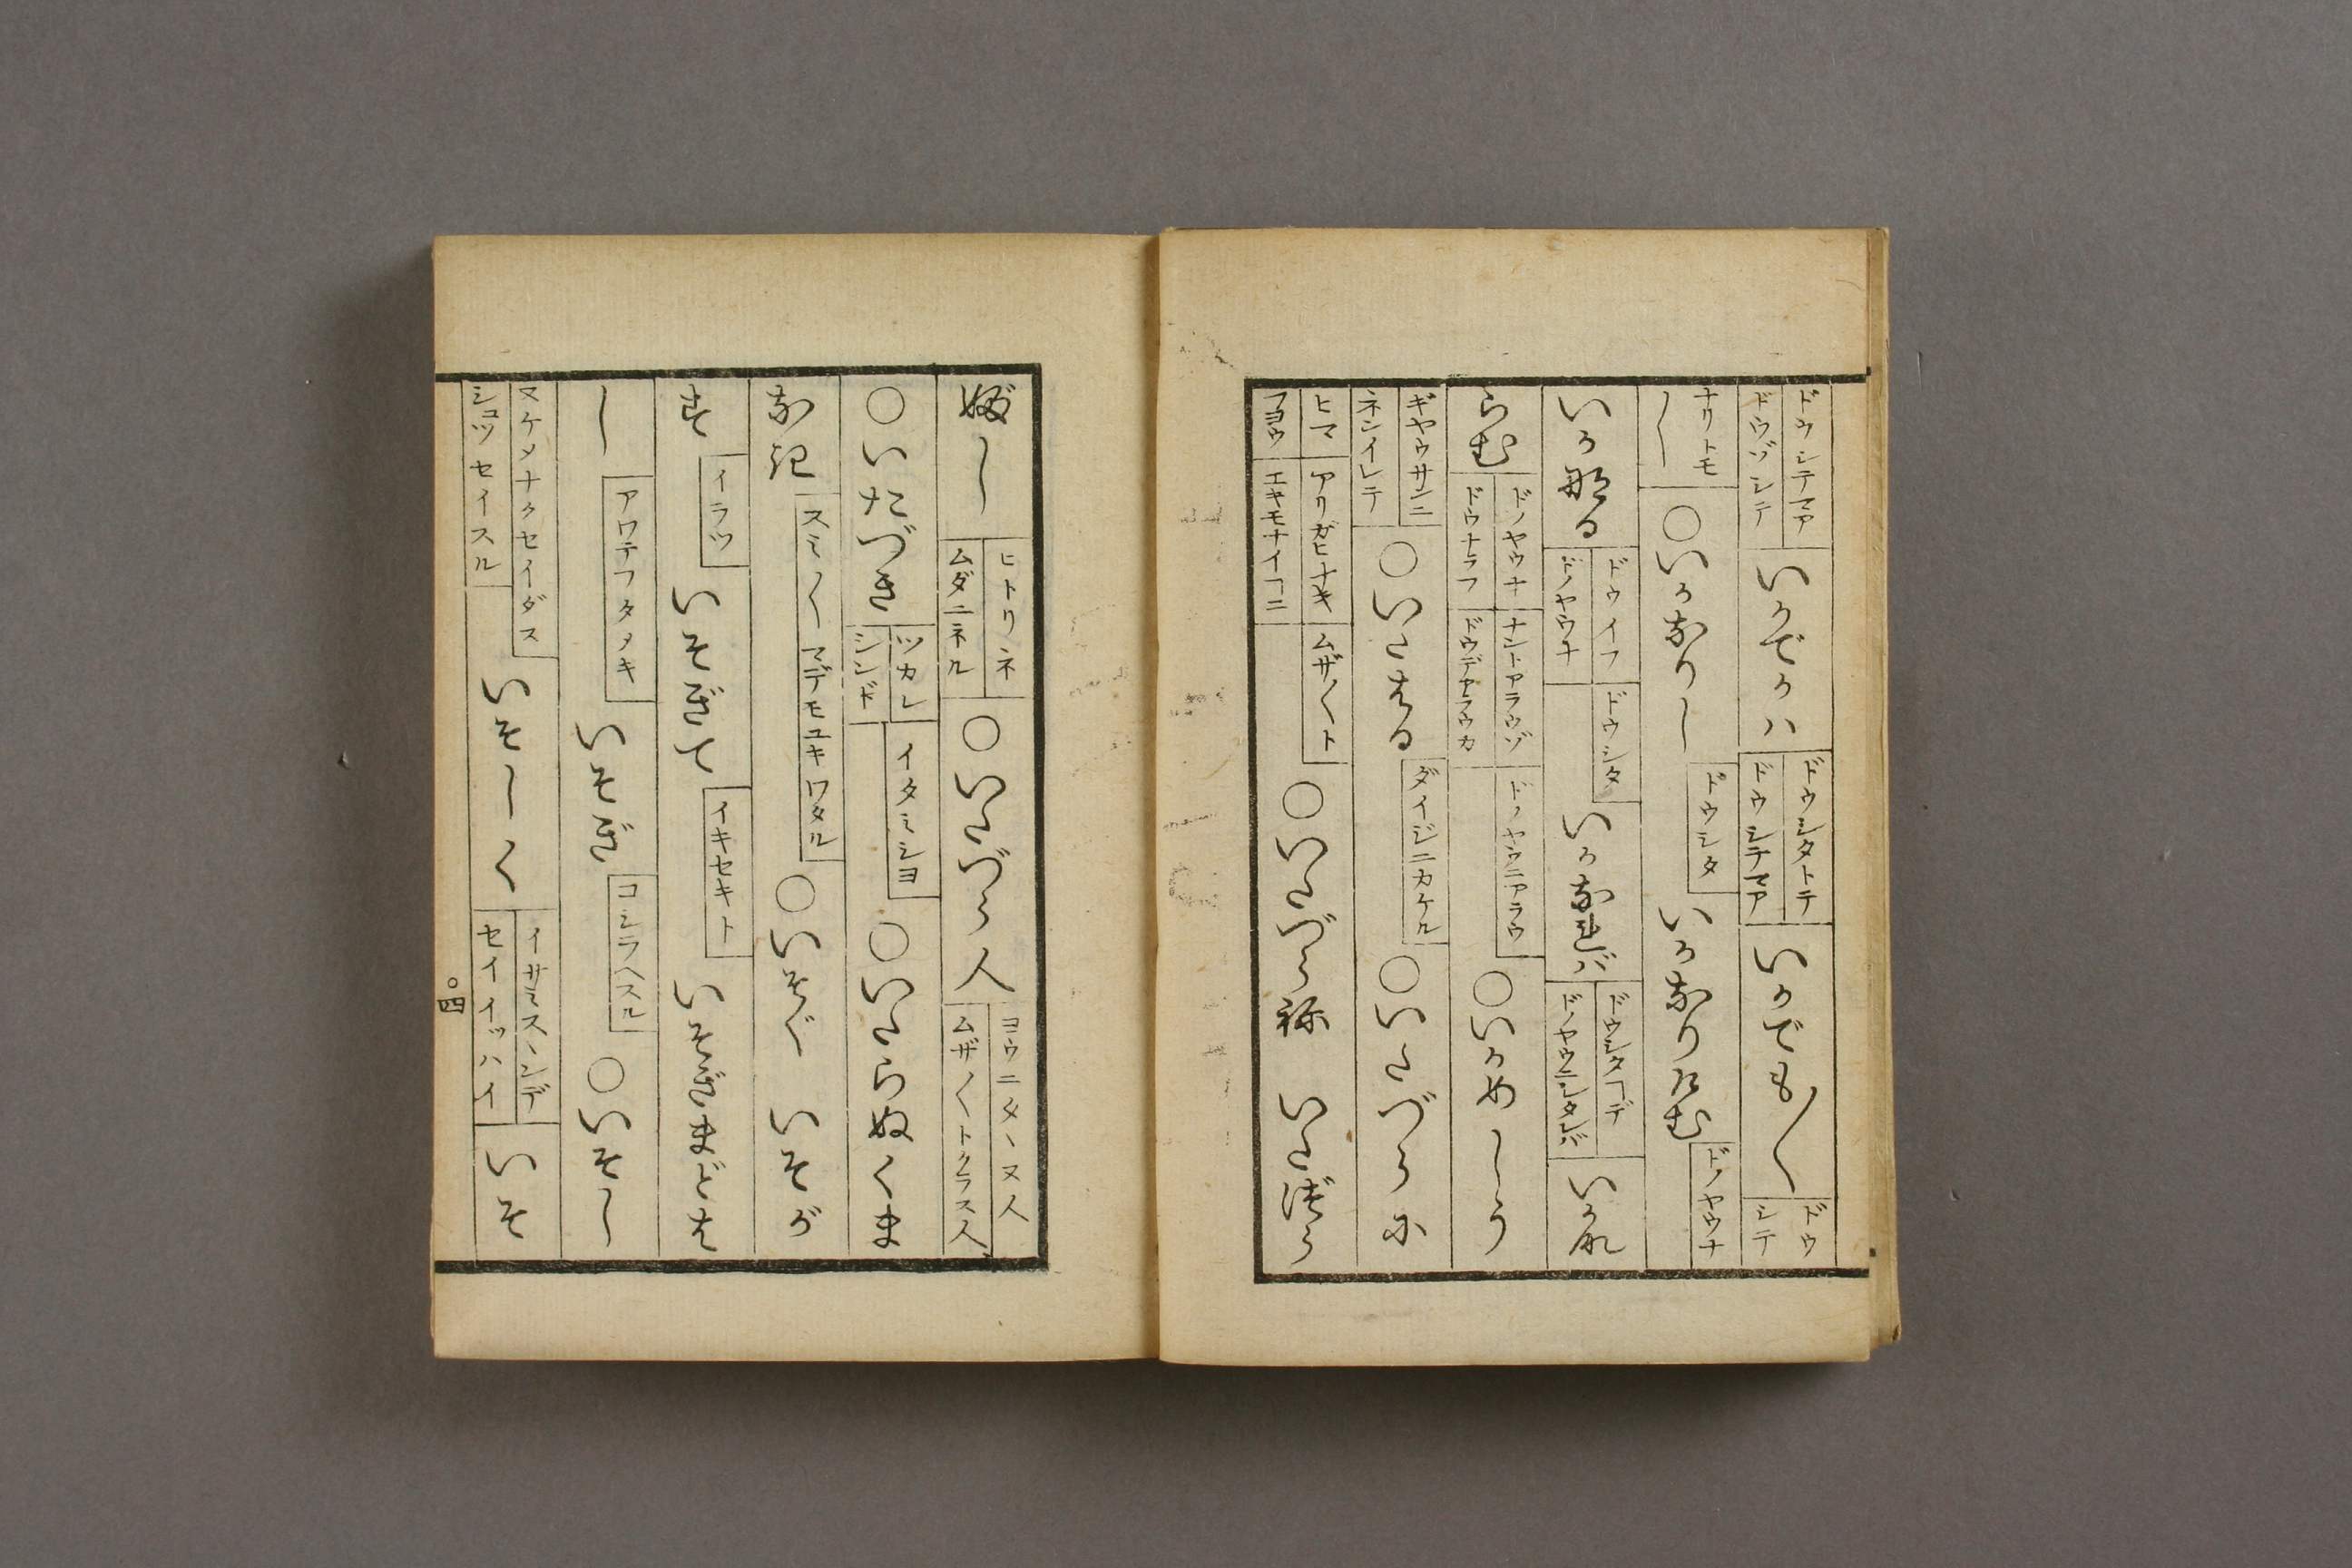 ドウシテマア
ドウゾシテ
いかでかハ
ドウシタトテ
ドウシテマア
いかでも〳〵
ドウ
シテ
ナリトモ
し
〇いかなりし
ドウシタ
いかなりけむ
ドノヤウナ
いか那る
ドウイフ
ドノヤウナ
ドウシタ
いかなれバ
ドウシタヿデ
ドノヤウニシタレバ
いかな
らむ
ドノヤウナ
ドウナラフ
ナントアラウゾ
ドウデアラウカ
ドノヤウニアラウ
〇いかめしう
ギヤウサンニ
ネンイレテ
〇いたはる
ダイジニカケル
〇いたづらに
ヒマ
マヨウ
アリガヒナキ
エキモナイヿニ
ムザ〳〵ト
〇いたづら祢
いたづら
ぶし
ヒトリネ
ムダニネル
〇いたづら人
ヨウニタヽヌ人
ムザ〳〵トクラス人
〇いたづき
ツカレ
シンド
イタミシヨ
〇いたらぬくま
なき
スミ〳〵マデモユキワタル
〇いそぐ
いそが
す
イラツ
いそぎて
イキセキト
いそぎまどは
し
アワテフタメキ
いそぎ
コシラヘスル
〇いそし
ヌケメナクセイダス
シヨツセイスル
いそしく
イサミスヽンデ
セイイツハイ
いそ
〇四